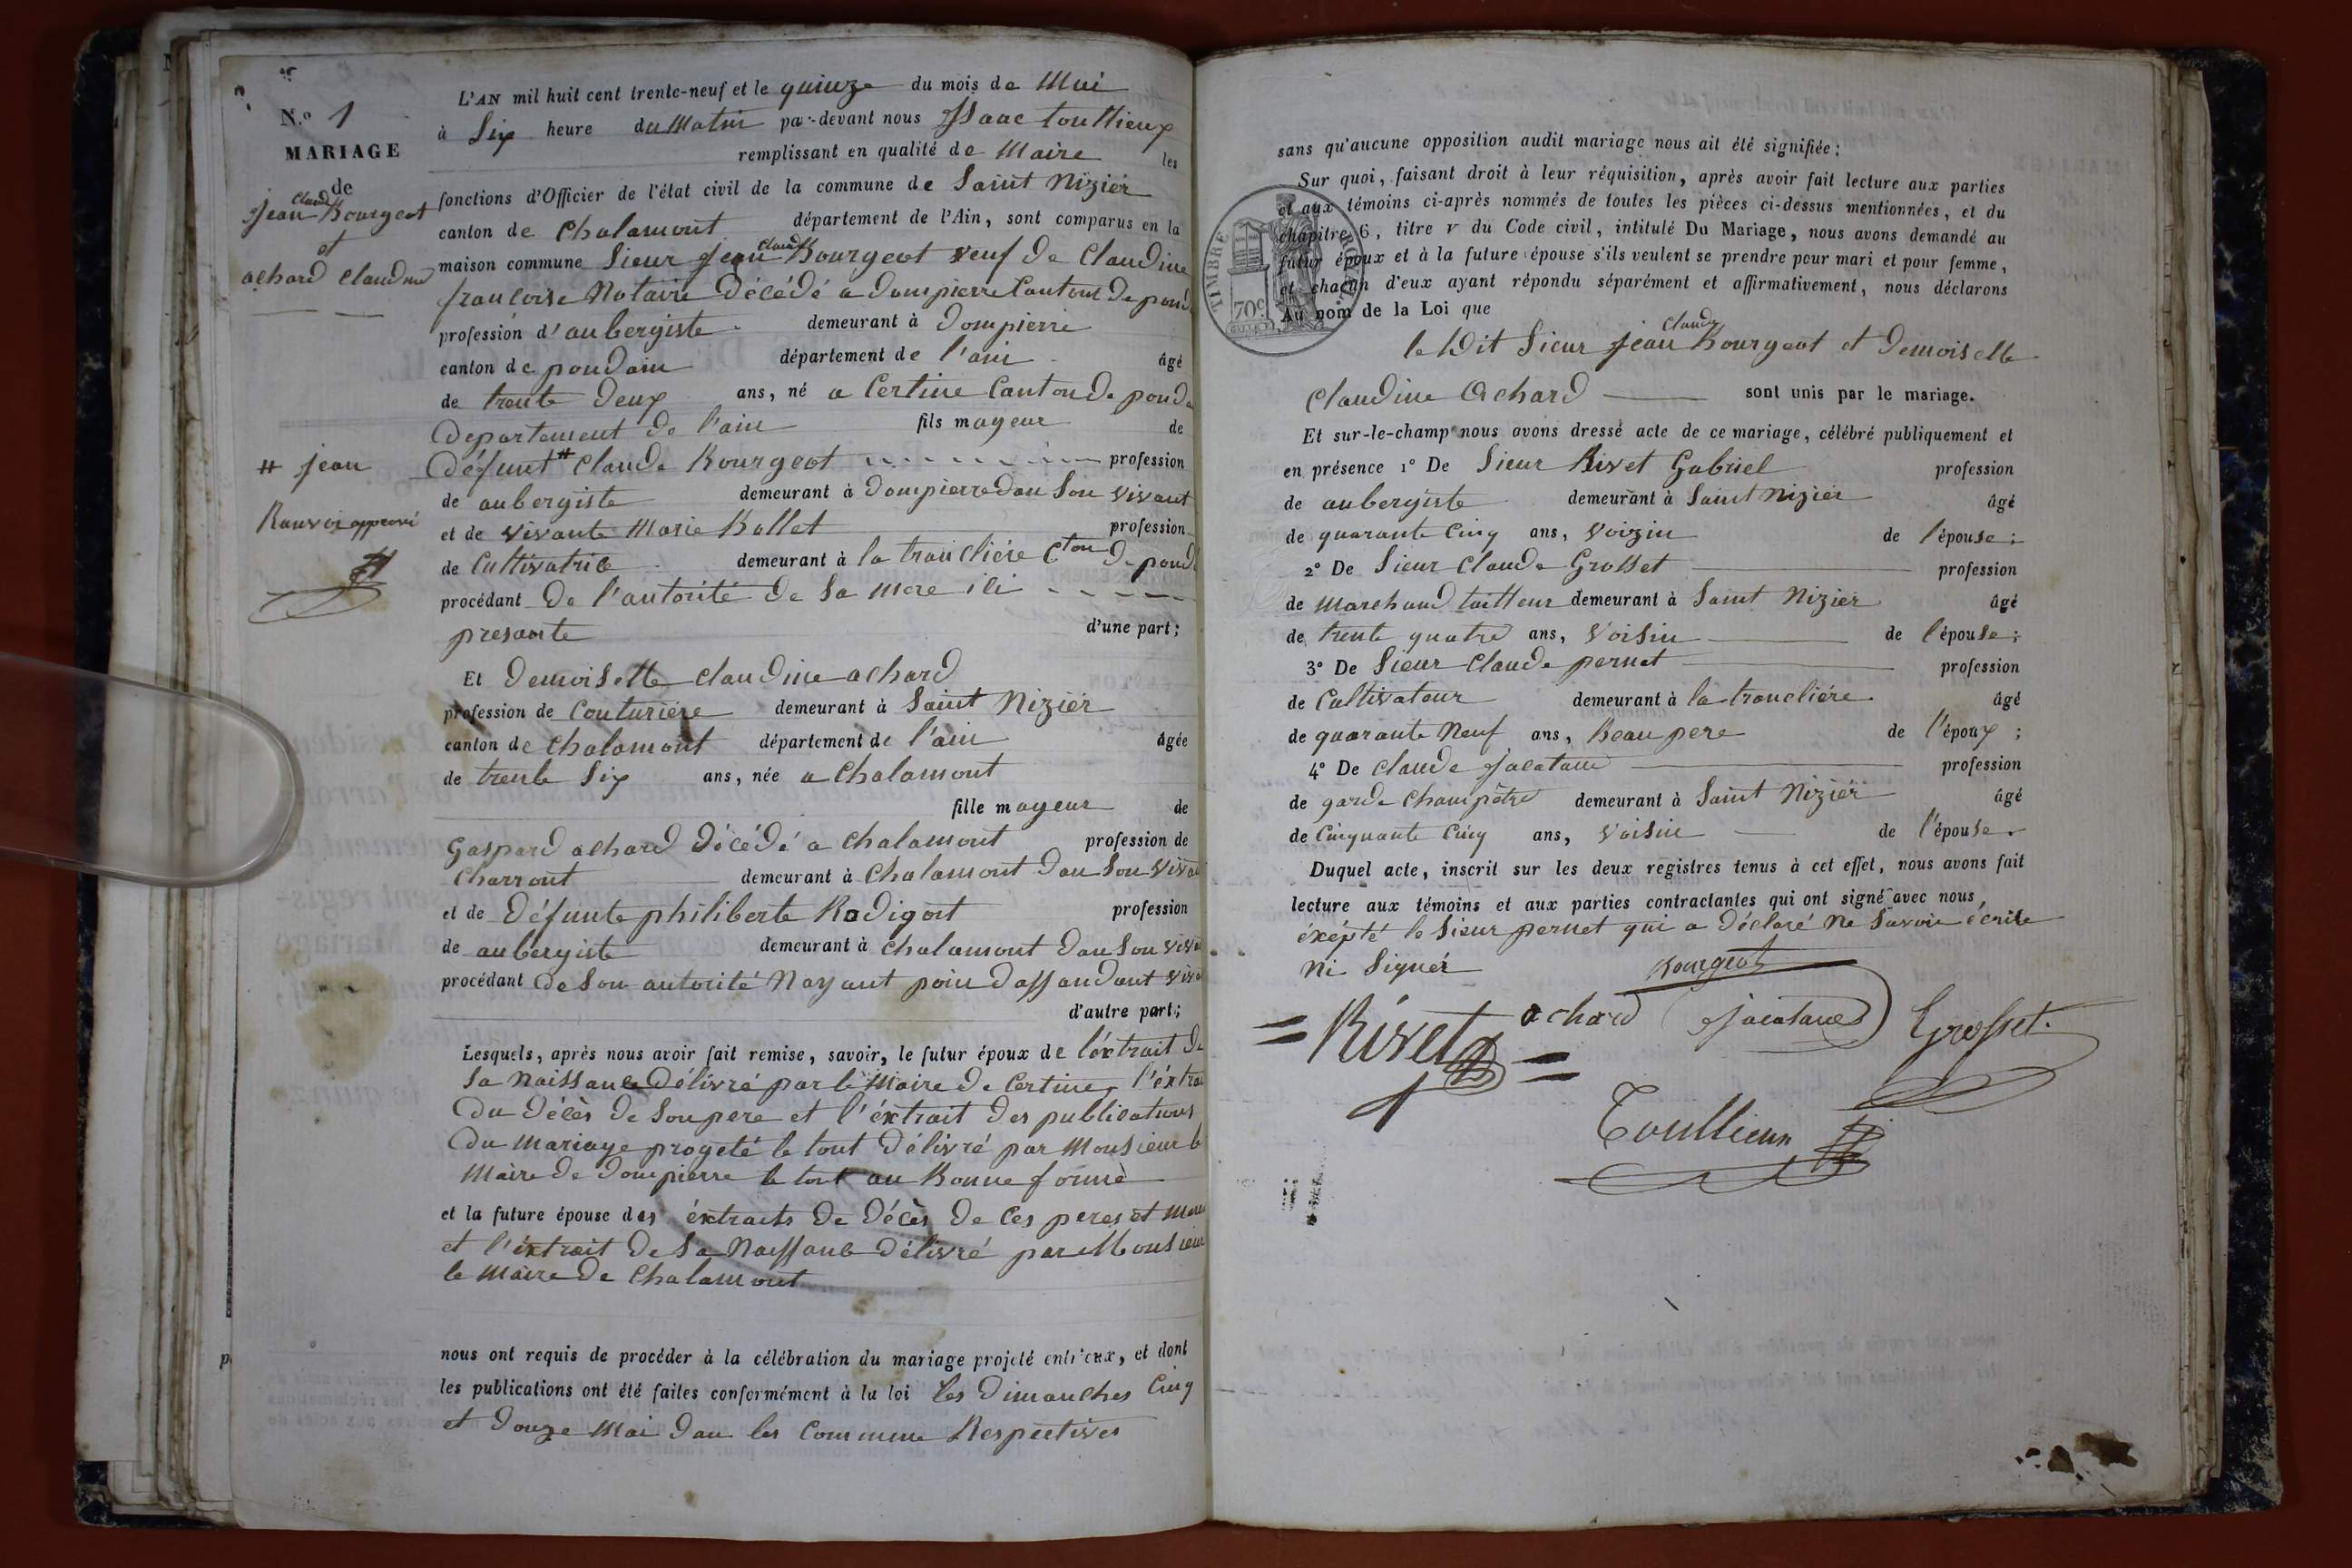 N.º 1
MARIAGE
de
Jean Claude Bourgeot
et
achard Claudine
# jean
Ranvoi approuvé
L'AN mil huit cent trente-neuf et le quinze du mois de Mai
à Six heure du Matin par-devant nous Isaac toullieux
remplissant en qualité de Maire les
fonctions d'Officier de l'état civil de la commune de Saint Nizier
canton de Chalamont département de l'Ain, sont comparus en la
maison commune Sieur Jean Claude Bourgeot veuf de Claudine
francoise Notaire décédé a dompierre Canton de pond
profession d'aubergiste demeurant à dompierre
canton de pondain département de l'ain âgé
de trente deux ans, né a Certine Canton de ponda
departement de l'ain fils mayeur de
défunt # Claude Bourgeot profession
de aubergiste demeurant à dompierre dan Son vivant
et de vivante Marie Bollet profession
de Cultivatrice demeurant à la tranclière Cton de pond
procédant de l'autorité de Sa mere ili
presante d'une part;
Et demoiselle claudine achard
profession de Couturière demeurant à Saint Nizier
canton de Chalamont département de l'ain âgée
de trente Six ans, née a Chalamont
fille mayeur de
Gaspard achard décédé a Chalamont profession de
Charront demeurant à Chalamont dan Son viva
et de défunte philiberte Rodigost profession
de aubergiste demeurant à chalamont dan Son viva
procédant de Son autorité Nayant poin dassandant viva
d'autre part;
Lesquels, après nous avoir fait remise, savoir, le futur époux de l'éxtrait de
Sa Naissance délivré par le Maire de Certine, l'éxtra
du décès de Son pere et l'éxtrait des publications
du mariage progeté le tout délivré par Monsieur le
Maire de dompierre le tout au Bonne forme
et la future épouse des éxtraits de décès de Ces peres et mere
et l'éxtrait de Sa Naissance délivré par Monsieur
le Maire de Chalamont
nous ont requis de procéder à la célébration du mariage projeté entr'eux, et dont
les publications ont été faites conformément à la loi les dimanches Cinq
et douze Mai dan les Commune Respectives
sans qu'aucune opposition audit mariage nous ait été signifiée;
Sur quoi, faisant droit à leur réquisition, après avoir fait lecture aux parties
et aux témoins ci-après nommés de toutes les pièces ci-dessus mentionnées, et du
chapitre 6, titre v du Code civil, intitulé Du Mariage, nous avons demandé au
futur époux et à la future épouse s'ils veulent se prendre pour mari et pour femme,
et chacun d'eux ayant répondu séparément et affirmativement, nous déclarons
Au nom de la Loi que
TIMBRE ROYAL
70c
le Dit Sieur Jean Claude Bourgeot et demoiselle
Claudine Achard sont unis par le mariage.
Et sur-le-champ nous avons dressé acte de ce mariage, célébré publiquement et
en présence 1º De Sieur Rivet Gabriel profession
de aubergiste demeurant à Saint Nizier âgé
de quarante Cinq ans, voizin de l'épouse;
2º De Sieur Claude Grosset profession
de Marchand tailleur demeurant à Saint Nizier âgé
de trente quatre ans, voisin de l'épouse;
3º De Sieur Claude pernet profession
de Cultivateur demeurant à la tranclière âgé
de quarante Neuf ans, Beau pere de l'époux;
4º De Claude Jacataud profession
de garde Champêtre demeurant à Saint Nizier âgé
de Cinquante Cinq ans, voisin de l'épouse.
Duquel acte, inscrit sur les deux registres tenus à cet effet, nous avons fait
lecture aux témoins et aux parties contractantes qui ont signé avec nous,
éxépté le Sieur pernet qui a déclaré Ne Savoir écrire
Ni Signér
Bourgeot
Rivet achard Jacataud Grosset
Toullieux